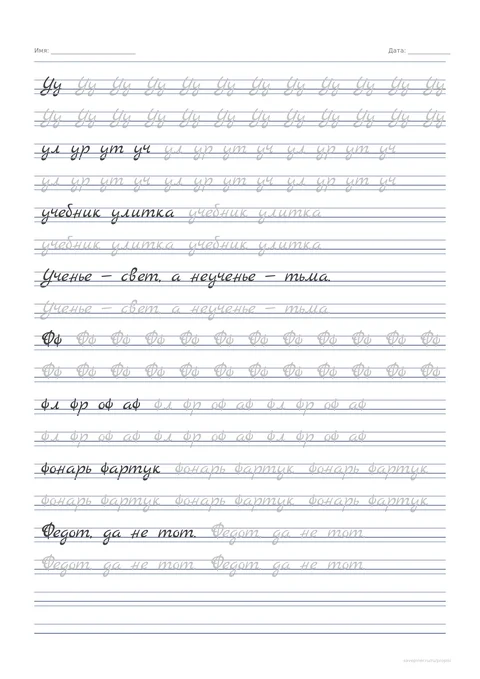 Имя: Дата:
Уу Уу Уу Уу Уу Уу Уу Уу Уу Уу Уу Уу
Уу Уу Уу Уу Уу Уу Уу Уу Уу Уу Уу Уу
ул ур ут уч ул ур ут уч ул ур ут уч
ул ур ут уч ул ур ут уч ул ур ут уч
учебник улитка учебник улитка
учебник улитка учебник улитка
Ученье – свет, а неученье – тьма.
Ученье – свет а неученье – тьма
Фф Фф Фф Фф Фф Фф Фф Фф Фф Фф Фф Фф
Фф Фф Фф Фф Фф Фф Фф Фф Фф Фф Фф Фф
фл фр оф аф фл фр оф аф фл фр оф аф
фл фр оф аф фл фр оф аф фл фр оф аф
фонарь фартук фонарь фартук фонарь фартук
фонарь фартук фонарь фартук фонарь фартук
Федот, да не тот. Федот да не тот
Федот да не тот Федот да не тот